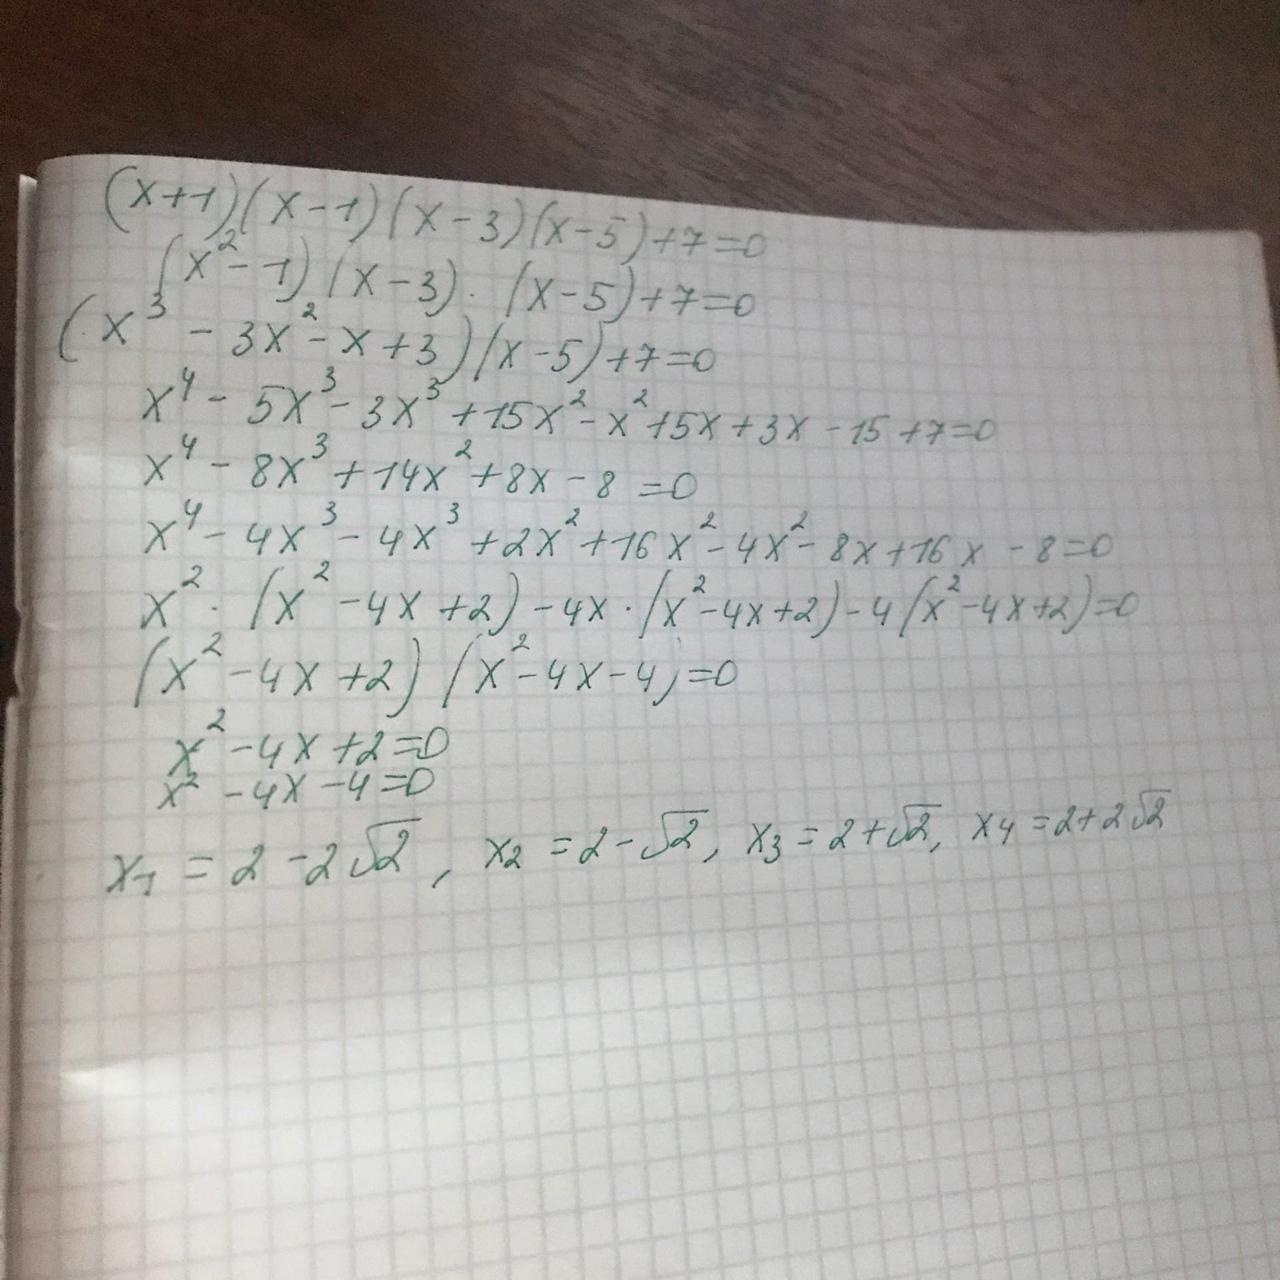 (x+1)(x-1)(x-3)(x-5)+7=0
(x²-1)(x-3)·(x-5)+7=0
(x³-3x²-x+3)(x-5)+7=0
x⁴-5x³-3x³+15x²-x²+5x+3x-15+7=0
x⁴-8x³+14x²+8x-8=0
x⁴-4x³-4x³+2x²+16x²-4x²-8x+16x-8=0
x²·(x²-4x+2)-4x·(x²-4x+2)-4(x²-4x+2)=0
(x²-4x+2)(x²-4x-4)=0
x²-4x+2=0
x²-4x-4=0
x₁=2-2√2, x₂=2-√2, x₃=2+√2, x₄=2+2√2